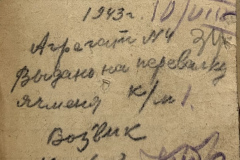 1943 г. 10/VIII
Агрегат №4
Выдань на перевалку
ячменя к/м 1.
Возчик